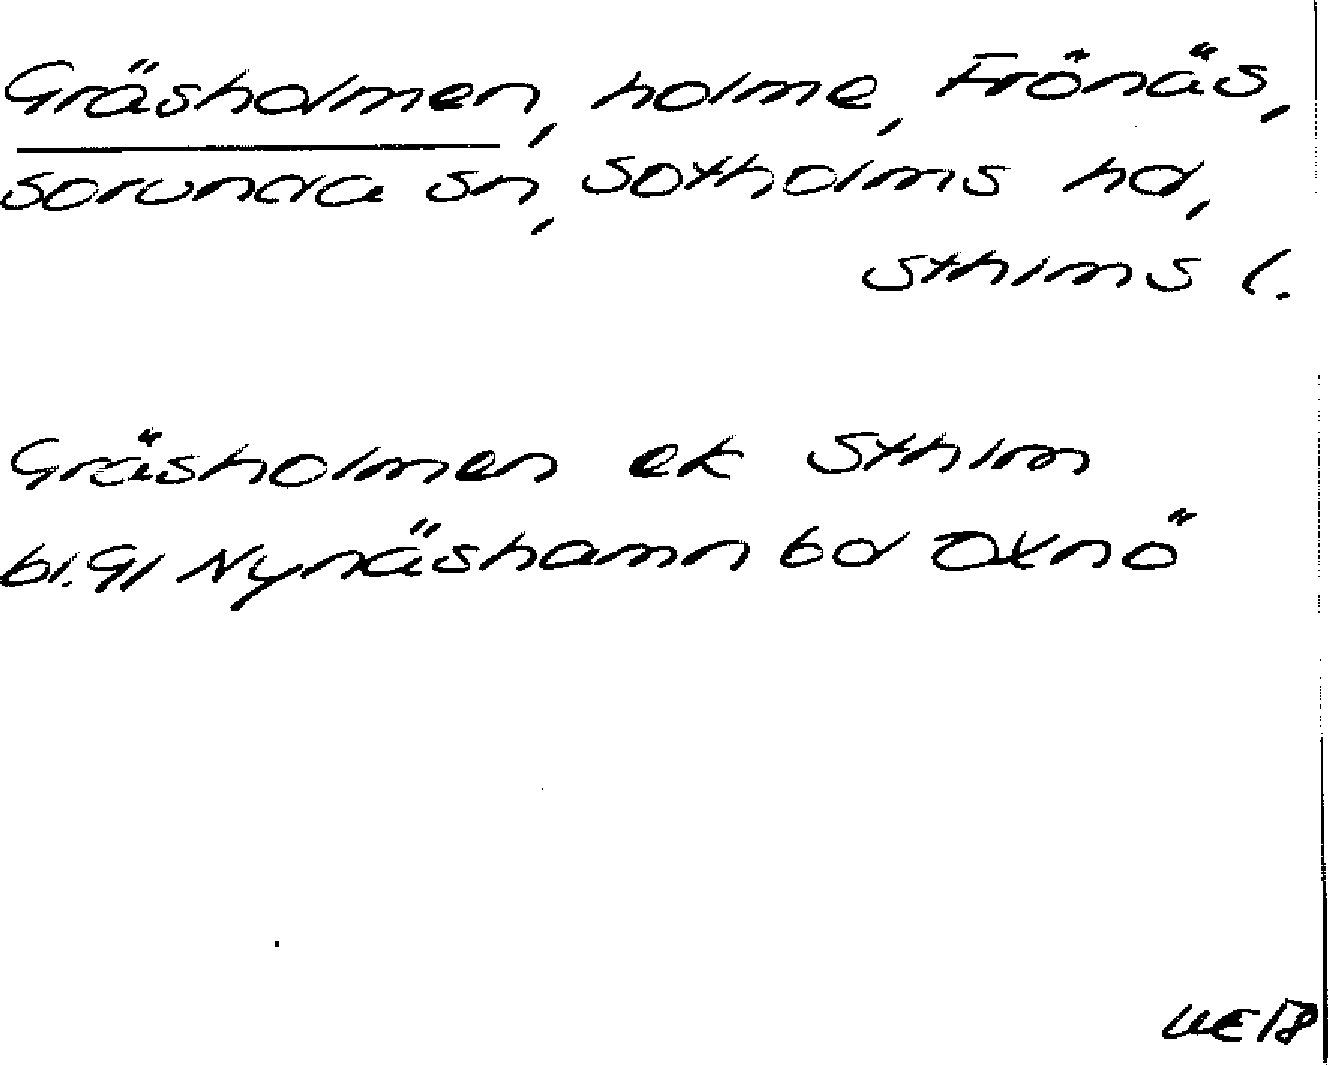 Gräsholmen, holme, Frönäs,
Sorunda sn, Sotholms hd,
Sthlms l.
Gräsholmen ek Sthlm
bl. 91 Nynäshamn bd Oxnö